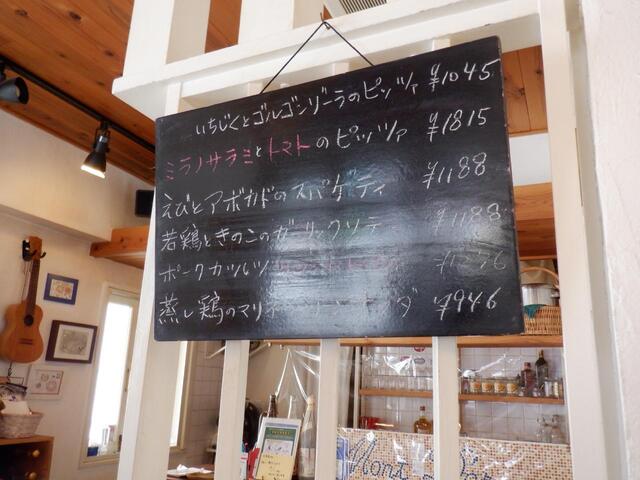 いちじくとゴルゴンゾーラのピッツァ ¥1045
ミラノサラミとトマトのピッツァ ¥1815
えびとアボカドのスパゲティ ¥1188
若鶏ときのこのガーリックソテー ¥1188
ポークカツレツ
蒸し鶏のマリネ ¥946